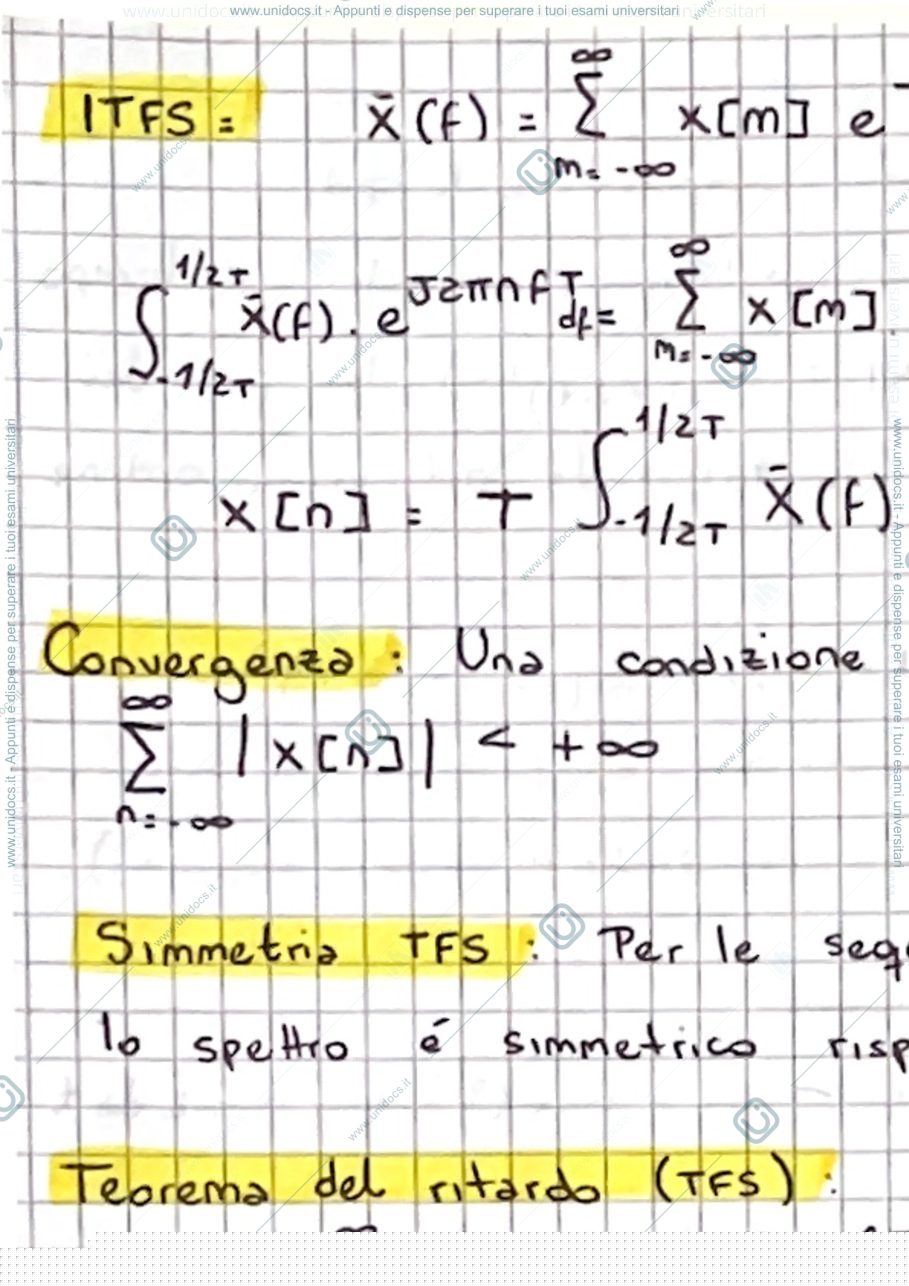 www.unidocs.it - Appunti e dispense per superare i tuoi esami universitari
ITFS = x̄(f) = ∑_{m=-∞}^{∞} x[m] e^-
∫_{-1/2T}^{1/2T} x̄(f) · e^{J2πnfT} df = ∑_{m=-∞}^{∞} x[m]
x[n] = T ∫_{-1/2T}^{1/2T} x̄(f)
Convergenza : Una condizione
∑_{n=-∞}^{∞} |x[n]| < +∞
Simmetria TFS : Per le seq
lo spettro é simmetrico risp
Teorema del ritardo (TFS) :
www.unidocs.it - Appunti e dispense per superare i tuoi esami universitari
www.unidocs.it - Appunti e dispense per superare i tuoi esami universitari